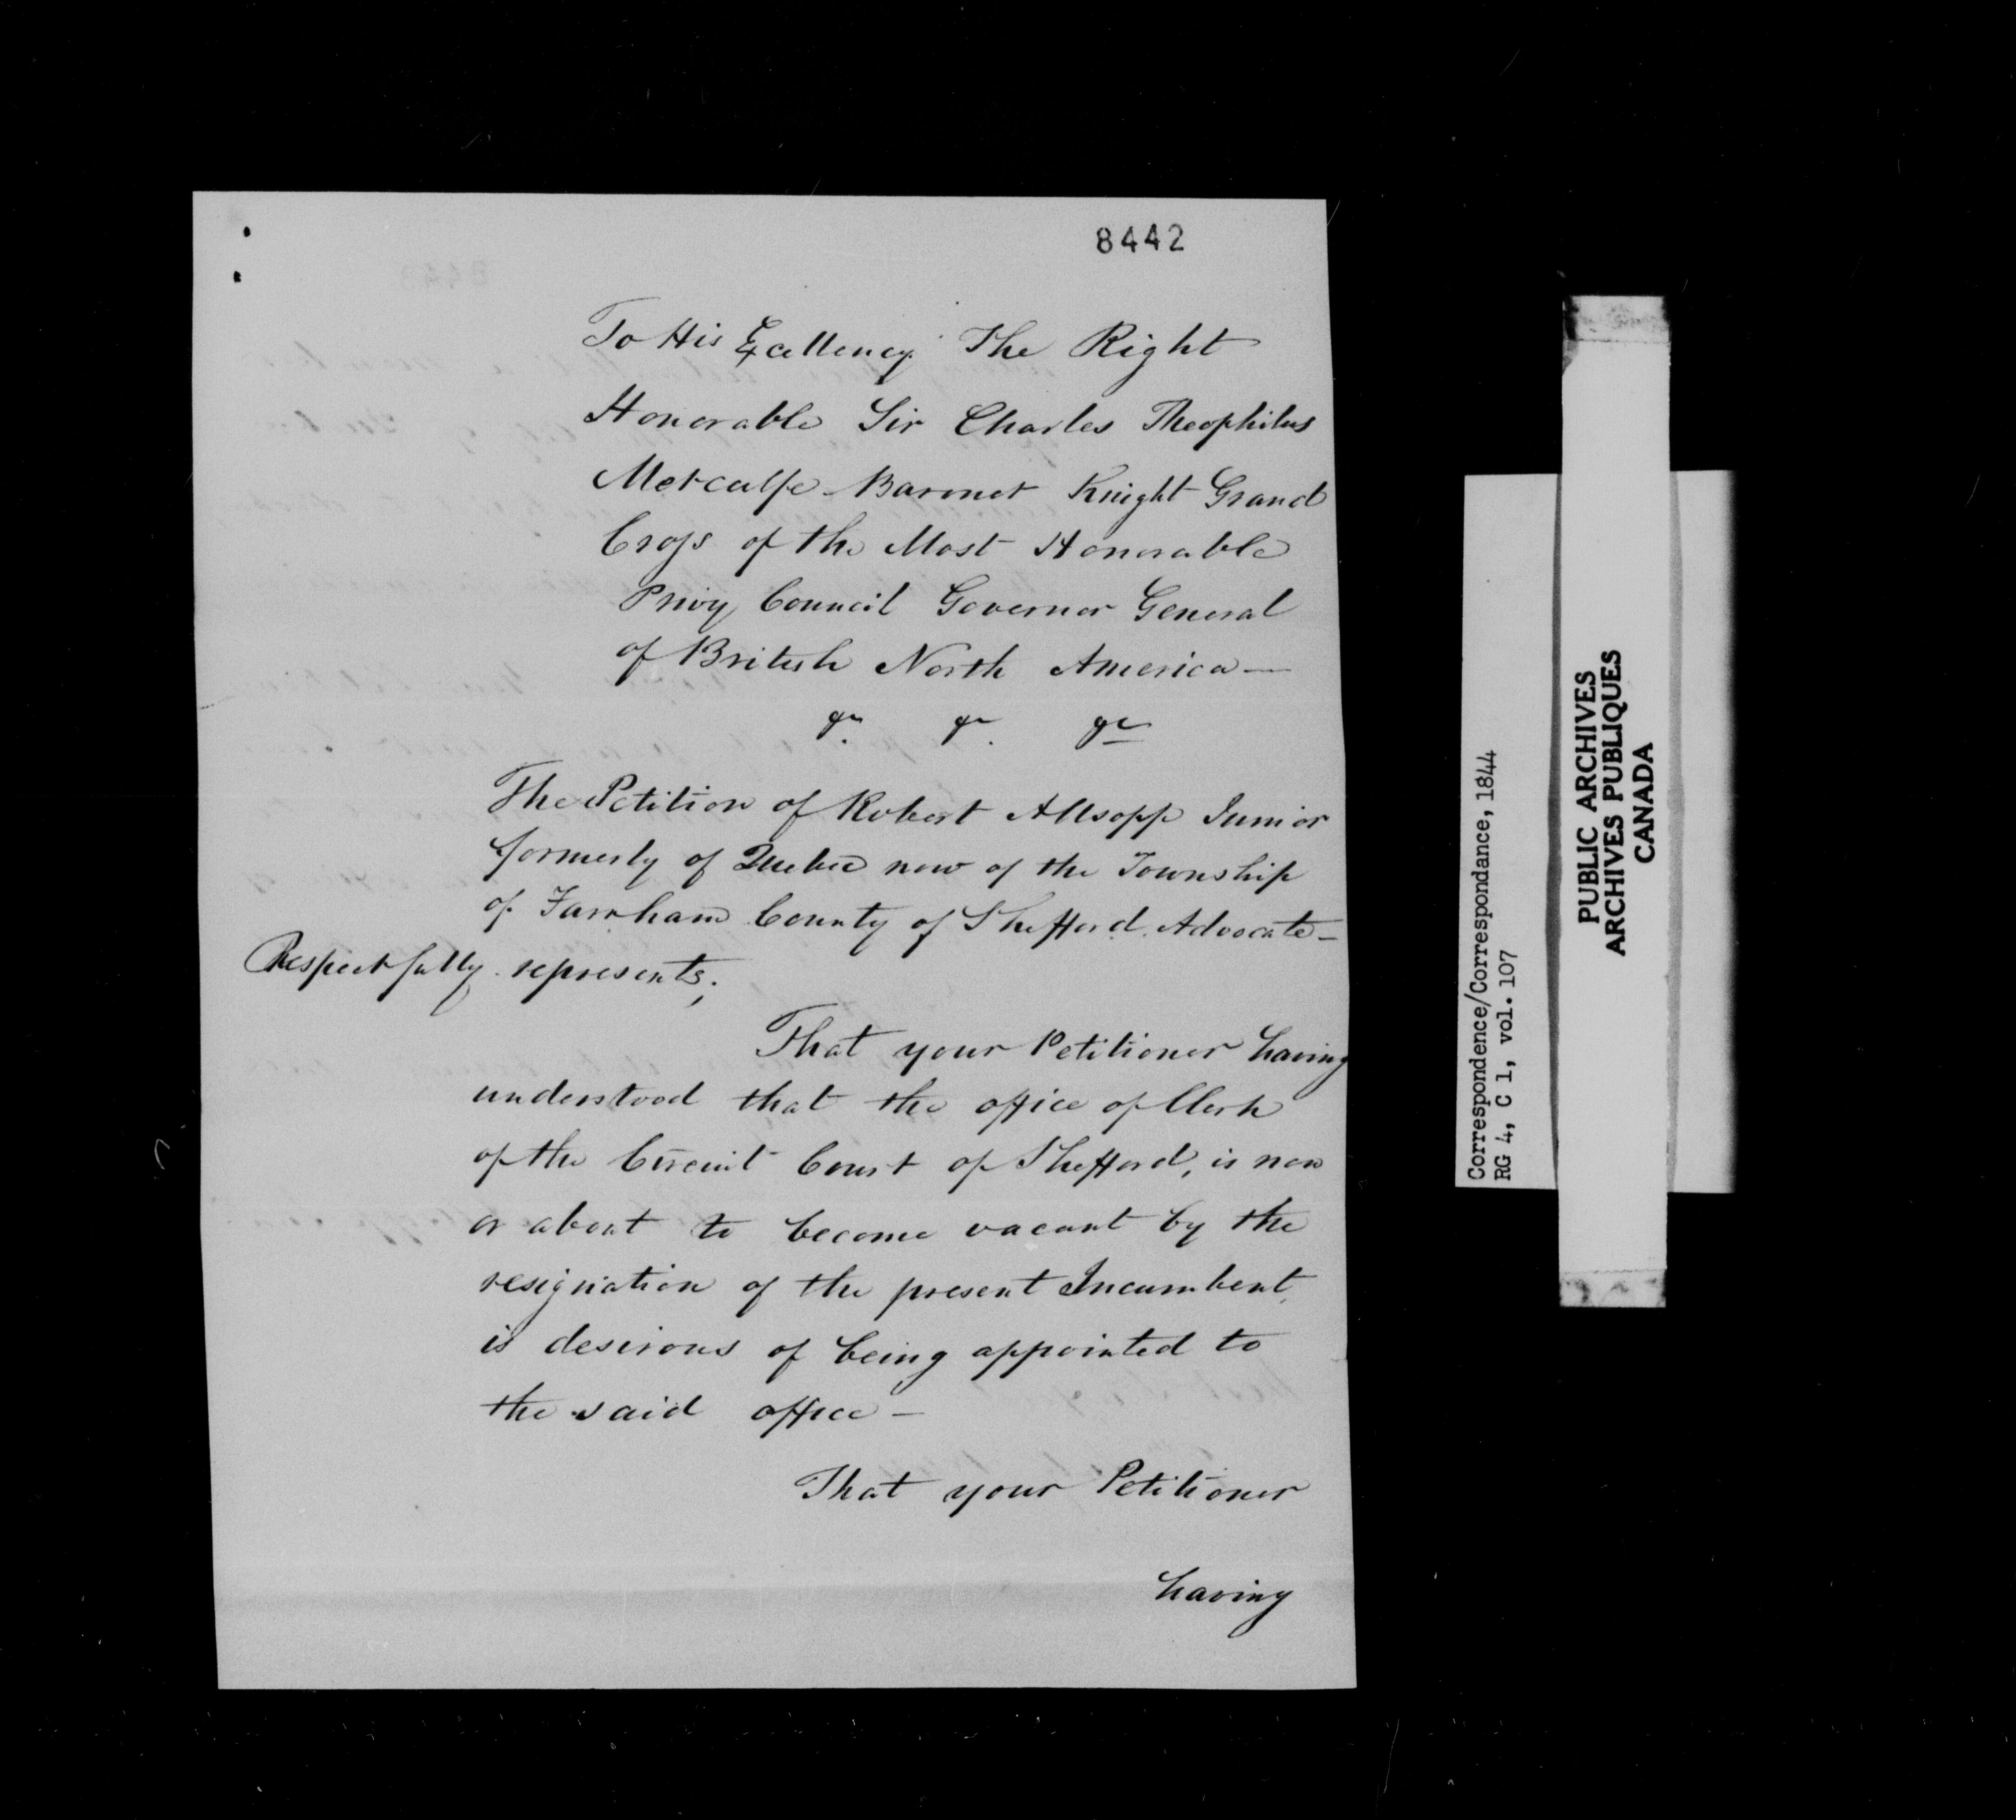 8442
To His Excellency The Right
Honorable Sir Charles Theophilus
Metcalfe Baronet Knight Grand
Cross of the Most Honorable
Privy Council Governor General
of British North America —
&c. &c. &c
The Petition of Robert Allsopp Junior
formerly of Quebec now of the Township
of Farnham County of Shefford Advocate —
Respectfully represents;
That your Petitioner having
understood that the office of Clerk
of the Circuit Court of Shefford, is now
or about to become vacant by the
resignation of the present Incumbent,
is desirous of being appointed to
the said office —
That your Petitioner
having
Correspondence/Correspondance, 1844
RG 4, C 1, vol. 107
PUBLIC ARCHIVES
ARCHIVES PUBLIQUES
CANADA